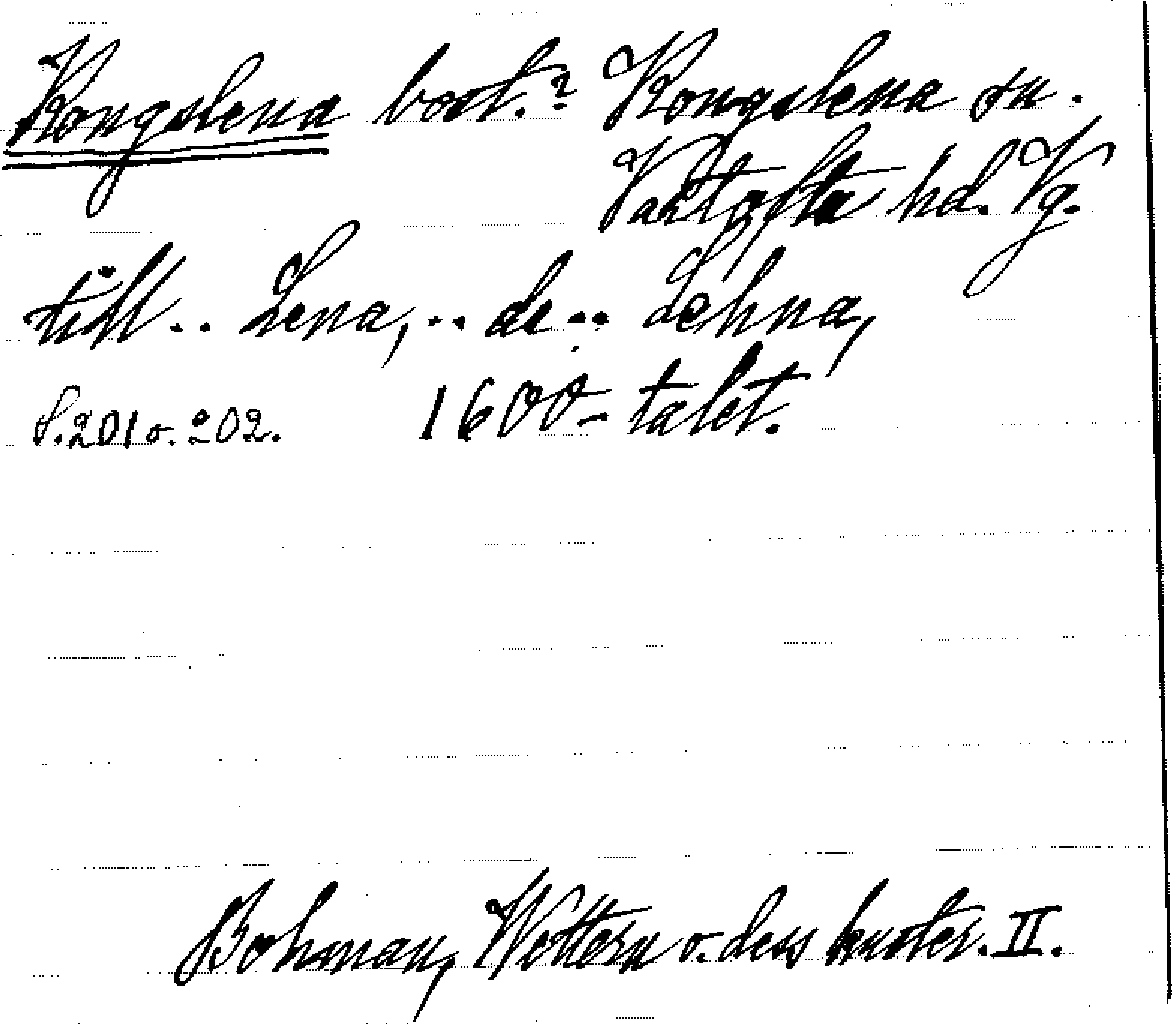 Kongslena bost.? Kongslena sn.
Vartofta hd. Vg.
till .. Lena, .. de .. Lehna,
S. 201 o. 202. 1600-talet.
Bohman, Wettern o. dess kuster. II.